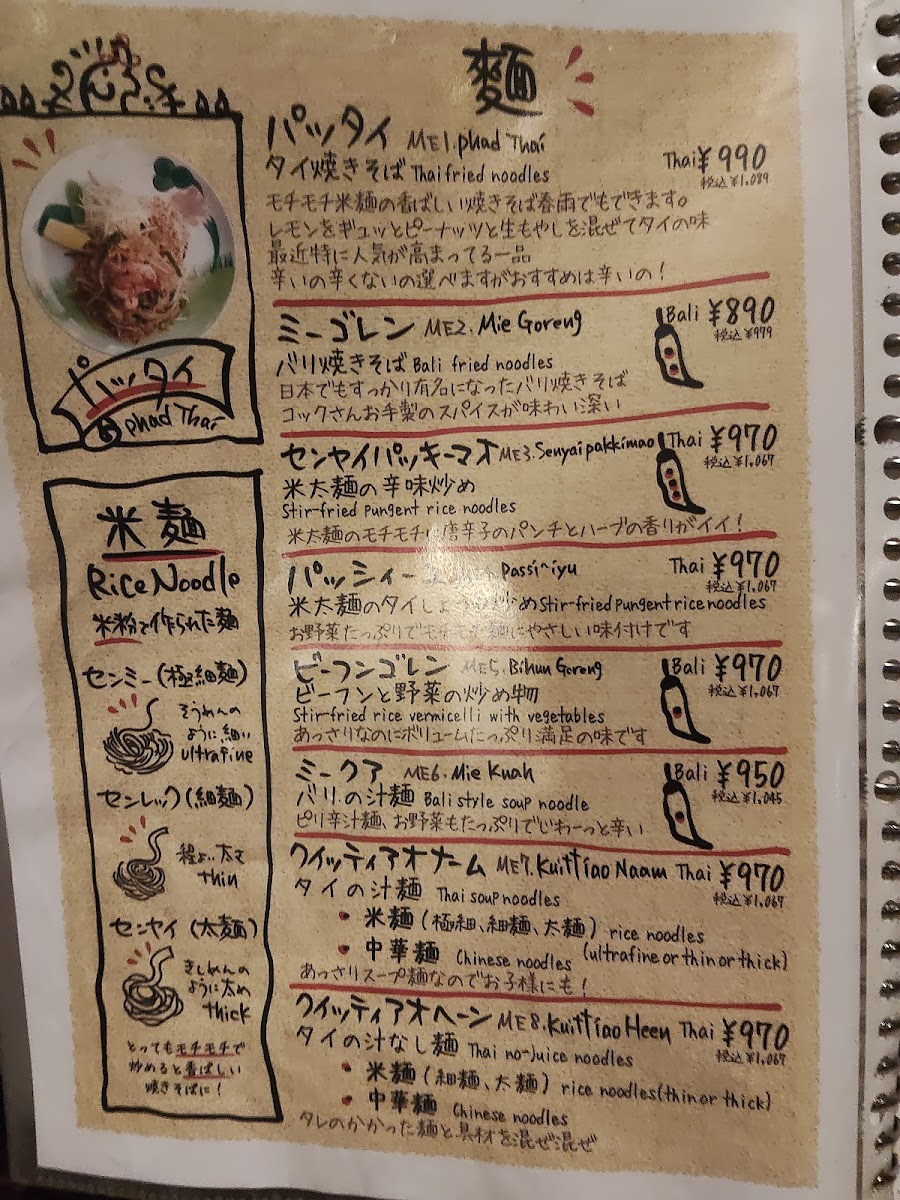 麺
パッタイ ME1.phad Thai
タイ焼きそば Thai fried noodles
Thai ¥990
税込¥1,089
モチモチ米麺の香ばしい焼きそば春雨でもできます。
レモンをギュッとピーナッツと生もやしを混ぜてタイの味
最近特に人気が高まってる一品
辛いの辛くないの選べますがおすすめは辛いの!
ミーゴレン ME2.Mie Goreng
Bali ¥890
税込¥979
バリ焼きそば Bali fried noodles
日本でもすっかり有名になったバリ焼きそば
コックさんお手製のスパイスが味わい深い
センヤイパッキーマオ ME3.Senyai pakkimao Thai ¥970
税込¥1,067
米太麺の辛味炒め
Stir-fried pungent rice noodles
米太麺のモチモチ 唐辛子のパンチとハーブの香りがイイ!
パッシィー Passi~iyu
Thai ¥970
税込¥1,067
米太麺のタイしょ 炒め Stir-fried pungent rice noodles
お野菜たっぷりでモチモチ麺にやさしい味付けです
ビーフンゴレン ME5.Bihun Goreng
Bali ¥970
税込¥1,067
ビーフンと野菜の炒め物
Stir-fried rice vermicelli with vegetables
あっさりなのにボリュームたっぷり満足の味です
ミークア ME6.Mie Kuah
Bali ¥950
税込¥1,045
バリの汁麺 Bali style soup noodle
ピリ辛汁麺、お野菜もたっぷりでじわーっと辛い
クイッティアオナーム ME7.Kuittiao Naam Thai ¥970
税込¥1,067
タイの汁麺 Thai soup noodles
• 米麺(極細、細麺、太麺) rice noodles
(ultrafine or thin or thick)
• 中華麺 Chinese noodles
あっさりスープ麺なのでお子様にも!
クイッティアオヘーン ME8.Kuittiao Heen Thai ¥970
税込¥1,067
タイの汁なし麺 Thai no-juice noodles
• 米麺(細麺、太麺) rice noodles(thin or thick)
• 中華麺 Chinese noodles
タレのかかった麺と具材を混ぜ混ぜ
パッタイ
phad Thai
米麺
Rice Noodle
米粉で作られた麺
センミー(極細麺)
そうめんの
ように細い
ultrafine
センレック(細麺)
程よい太さ
thin
センヤイ(太麺)
きしめんの
ように太め
thick
とってもモチモチで
炒めると香ばしい
焼きそばに!